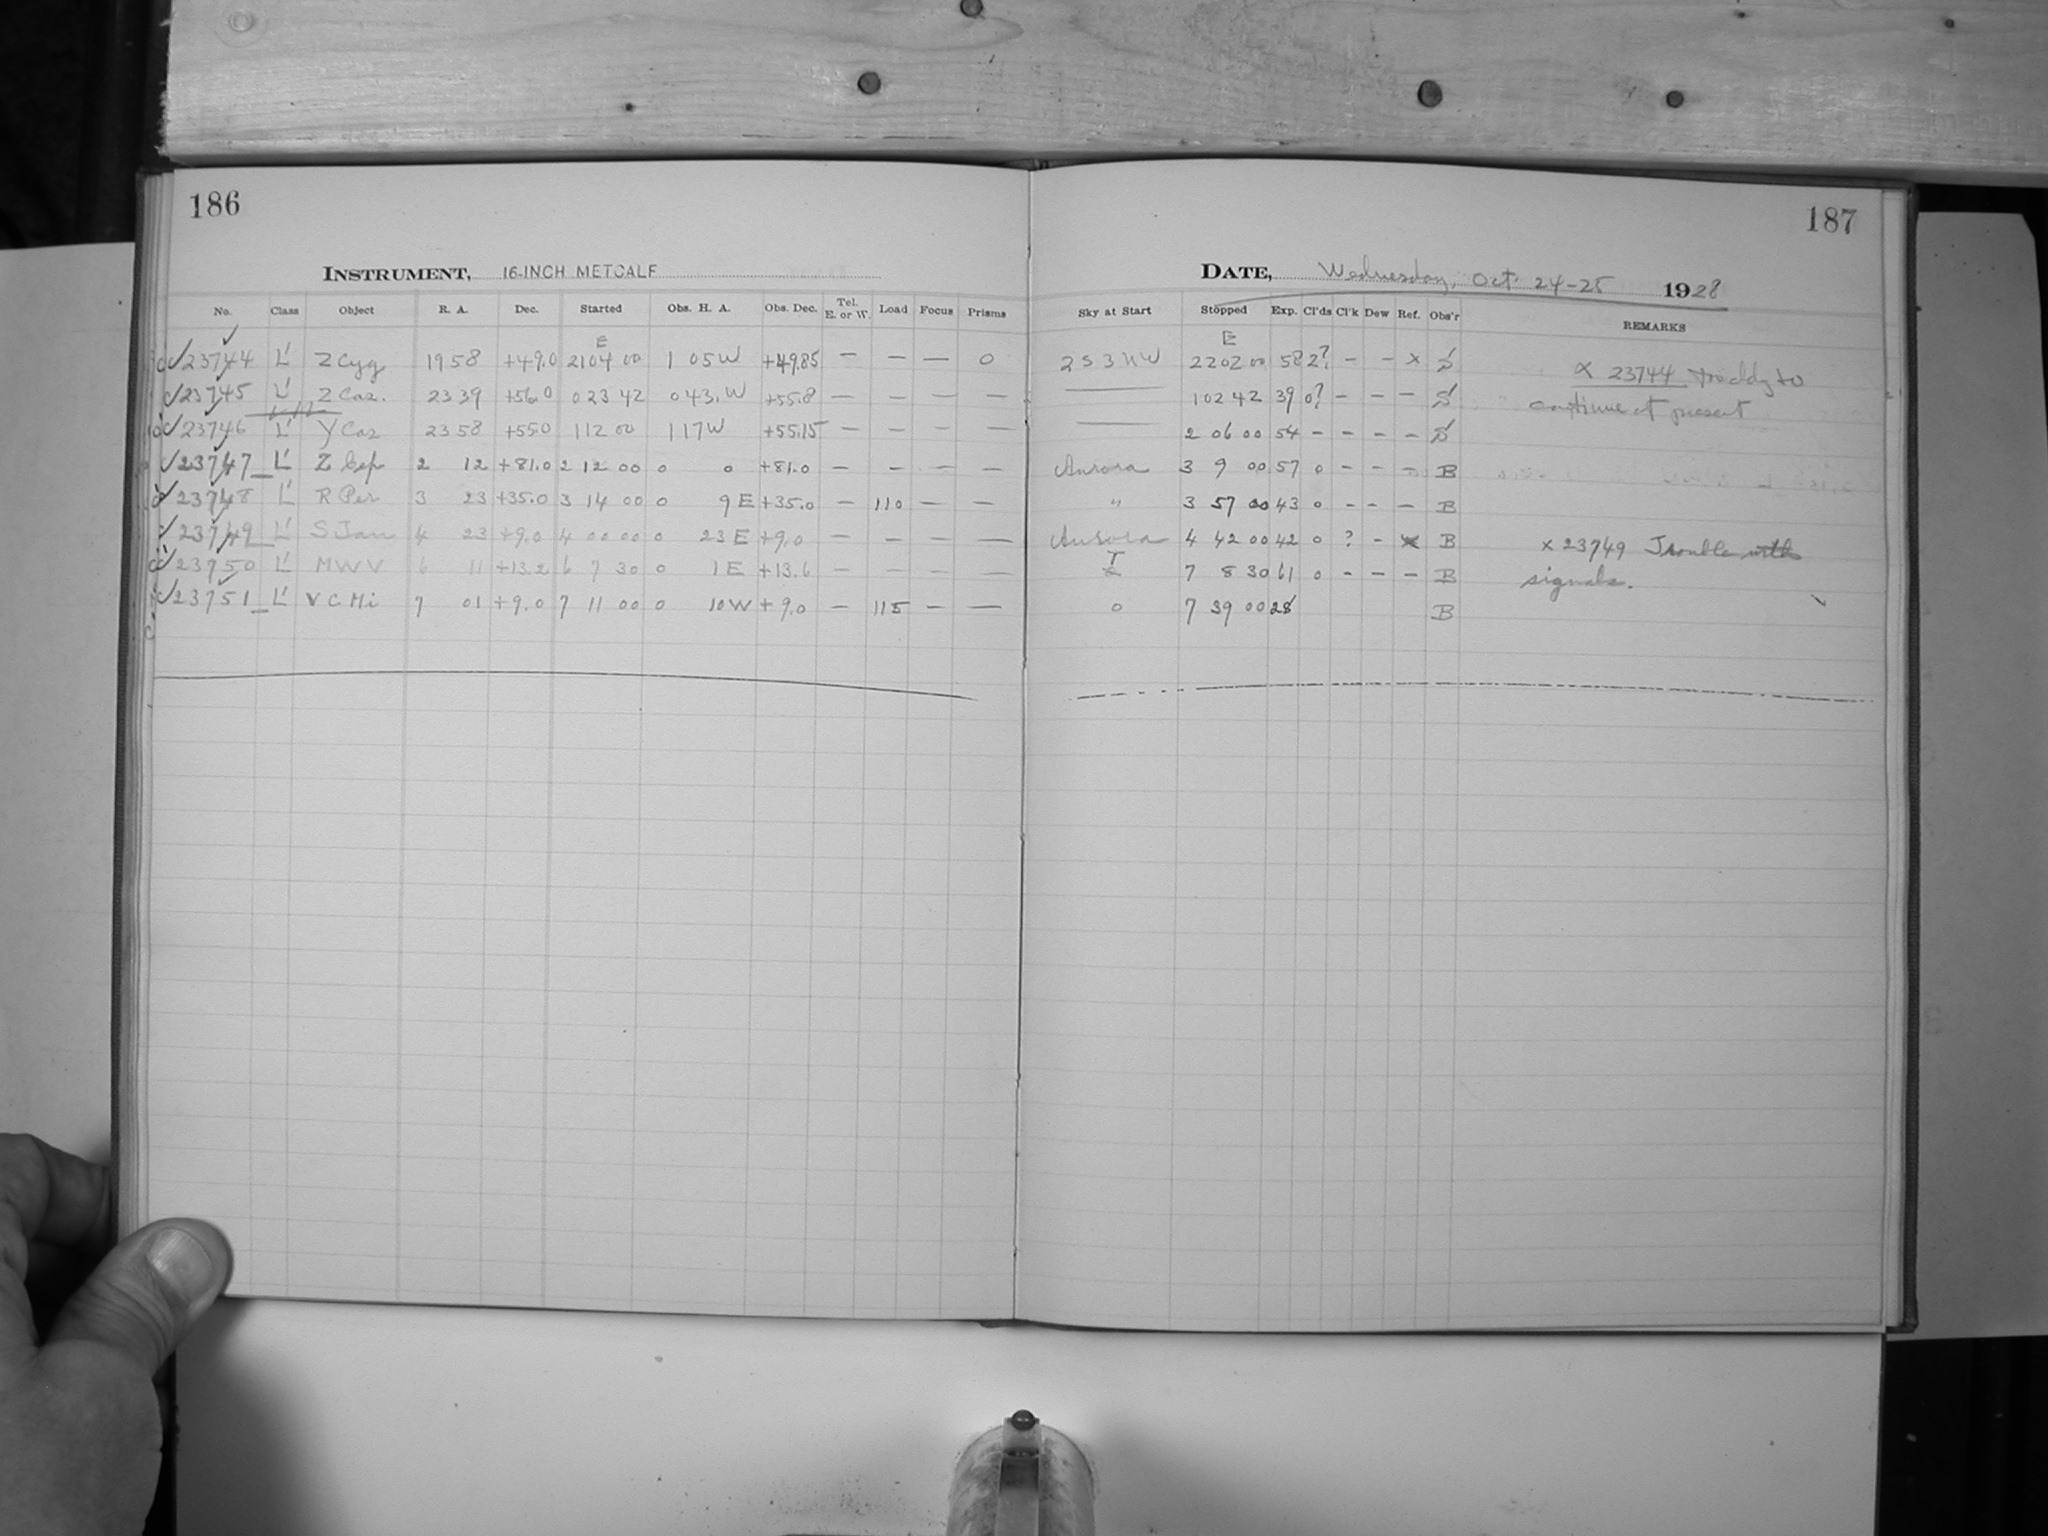 186
INSTRUMENT, 16-INCH METCALF
No. Class Object R. A. Dec. Started Obs. H. A. Obs. Dec. Tel. E. or W. Load Focus Prisms
E
23744 L' Z Cyg 19 58 +49.0 21 04 00 1 05 W +49.85 — — — 0
23745 L' Z Cas. 23 39 +56.0 0 23 42 0 43 W +55.8 — — — —
23746 L' Y Cas 23 58 +55.0 1 12 00 1 17 W +55.15 — — — —
23747 L' Z Cep 2 12 +81.0 2 12 00 0 0 +81.0 — — — —
23748 L' R Per 3 23 +35.0 3 14 00 0 9 E +35.0 — 110 — —
23749 L' S Tau 4 23 +9.0 4 00 00 0 23 E +9.0 — — — —
23750 L' MWV 6 11 +13.2 6 7 30 0 1 E +13.6 — — — —
23751 L' V C Mi 7 01 +9.0 7 11 00 0 10 W +9.0 — 115 — —
187
DATE, Wednesday, Oct. 24-25 1928
Sky at Start Stopped Exp. Cl'ds Cl'k Dew Ref. Obs'r REMARKS
E
2 S 3 NW 22 02 00 58 2? — — x S x 23744 to
— 1 02 42 39 0? — — — S continue at present
— 2 06 00 54 — — — — S
Aurora 3 9 00 57 0 — — — B
" 3 57 00 43 0 — — — B
Aurora 4 42 00 42 0 ? — x B x 23749 Trouble with
T 7 8 30 61 0 — — — B signals.
0 7 39 00 28 B